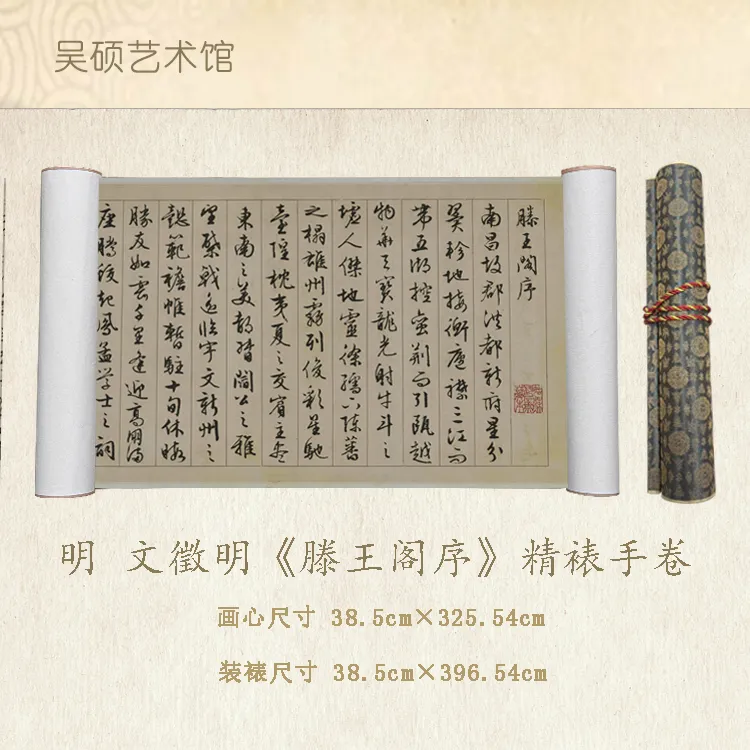 吴硕艺术馆
滕王閣序
南昌故郡洪都新府星分
翼軫地接衡廬襟三江而
帶五湖控蠻荊而引甌越
物華天寶龍光射牛斗之
墟人傑地靈徐孺下陳蕃
之榻雄州霧列俊彩星馳
臺隍枕夷夏之交賓主盡
東南之美都督閻公之雅
望棨戟遙臨宇文新州之
懿範襜帷暫駐十旬休暇
勝友如雲千里逢迎高朋滿
座騰蛟起鳳孟学士之詞
明 文徵明《滕王阁序》精裱手卷
画心尺寸 38.5cm×325.54cm
装裱尺寸 38.5cm×396.54cm